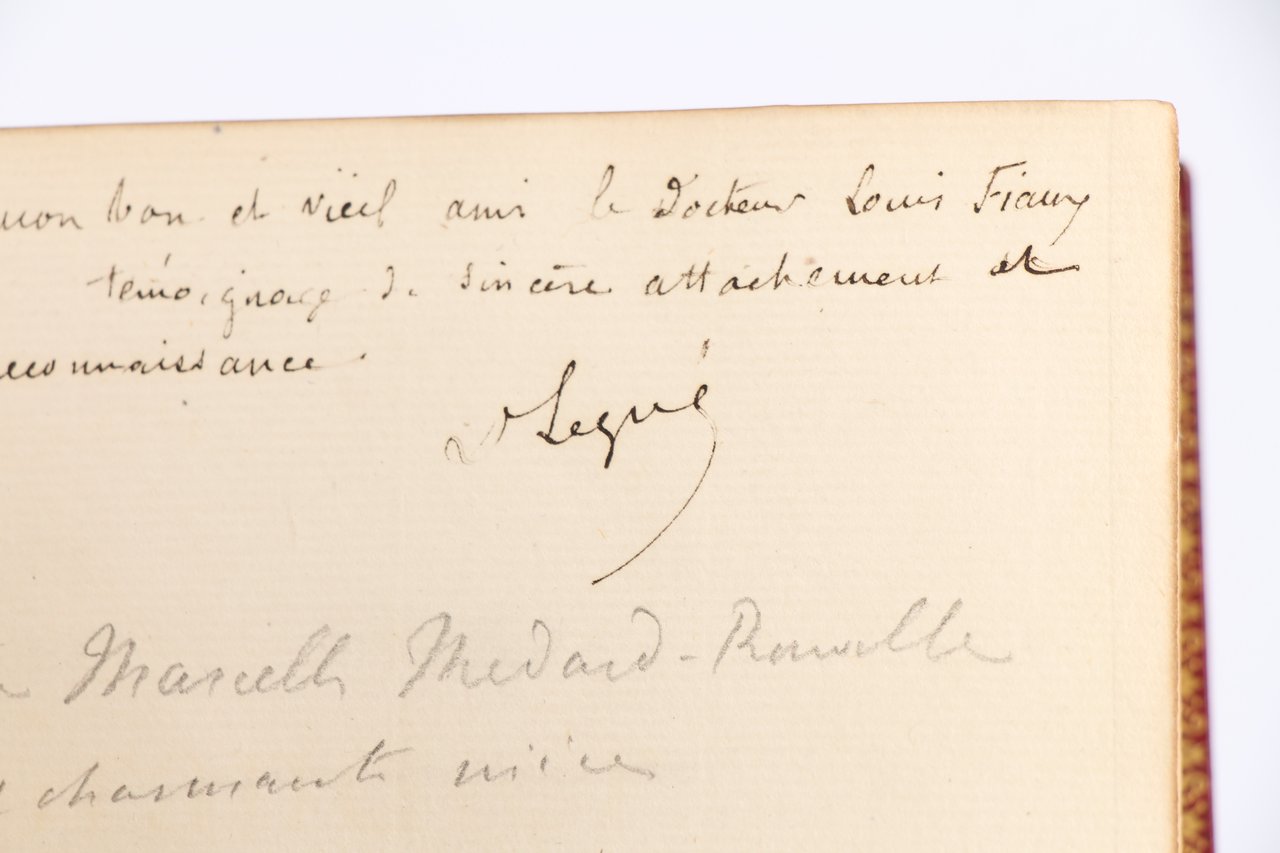 mon bon et vieil ami le Docteur Louis Fiaux
témoignage de sincère attachement et
reconnaissance.
Dr Legué
Marcelle Médard-
charmante nièce